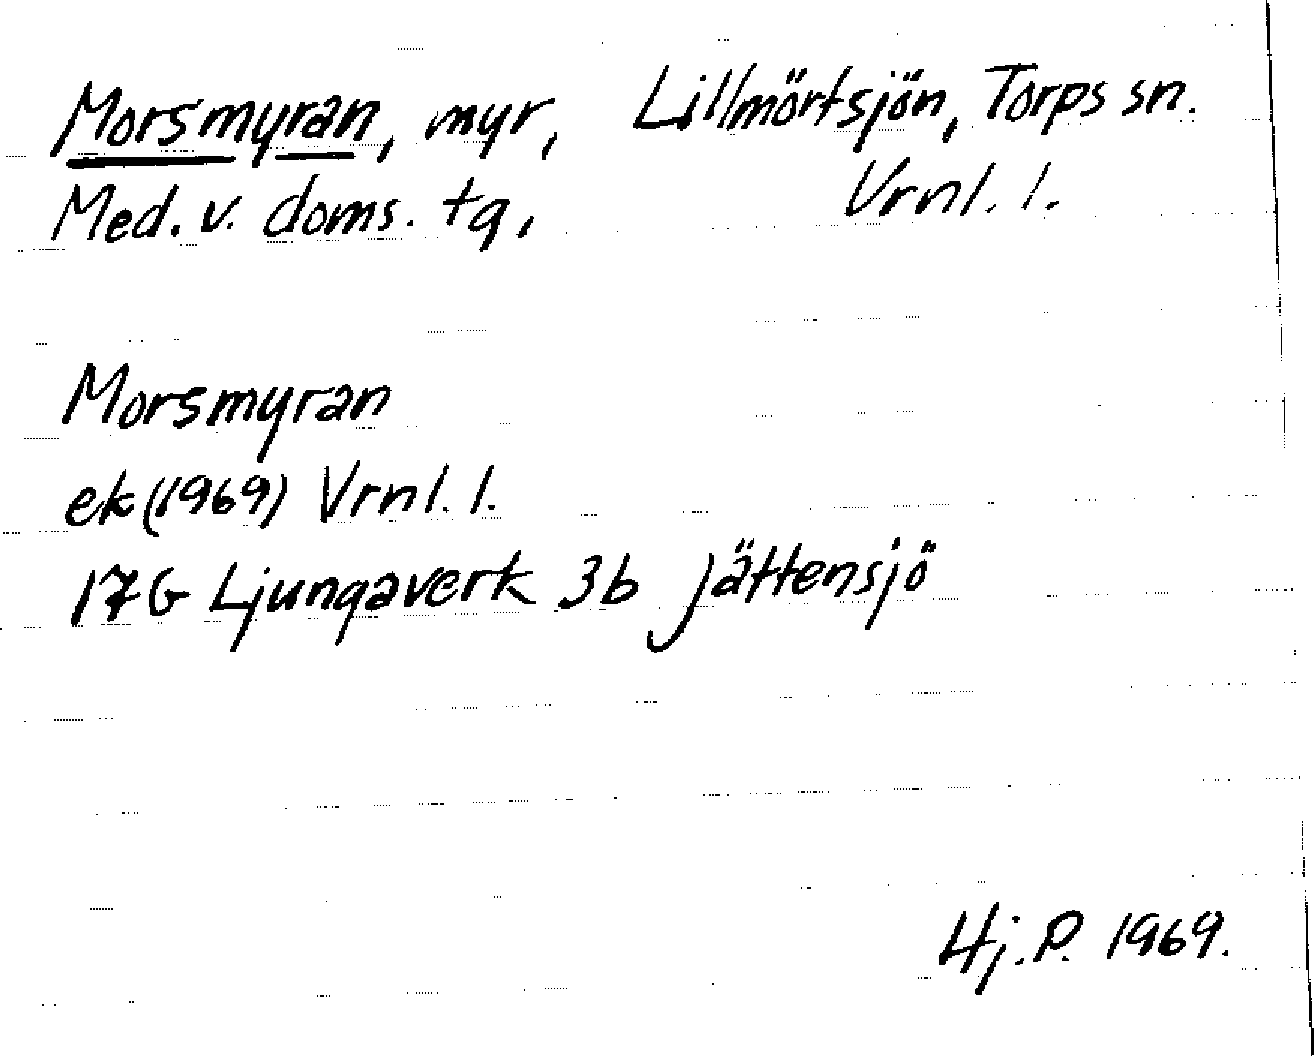 Morsmyran, myr, Lillmörtsjön, Torps sn.
Med. v. doms. tg, Vrnl. l.
Morsmyran
ek (1969) Vrnl. l.
17G Ljungaverk 3b Jättensjö
Hj. P. 1969.